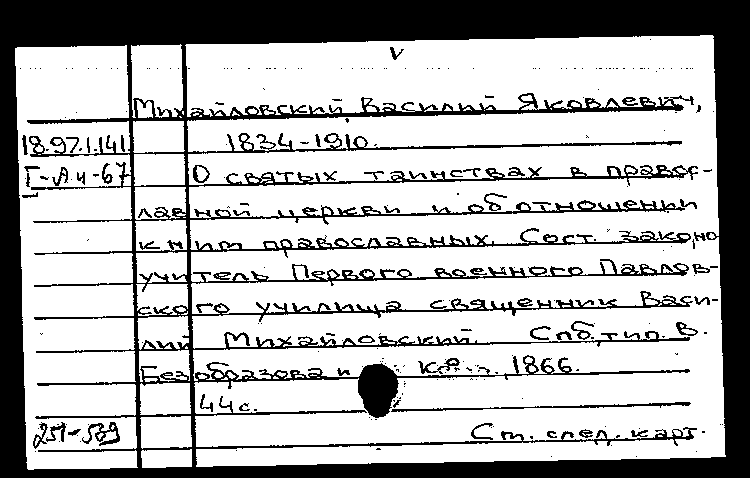 V
Михайловский, Василий Яковлевич,
18.97.1.141. 1834-1910.
I-Ан-67 О святых таинствах в правос-
лавной церкви и об отношении
к ним православных. Сост. законо
учитель Первого военного Павлов-
ского училища священник Васи-
лий Михайловский. Спб, тип. В.
Безобразова и К°, 1866.
44 с.
251-539 Ст. след. карт.